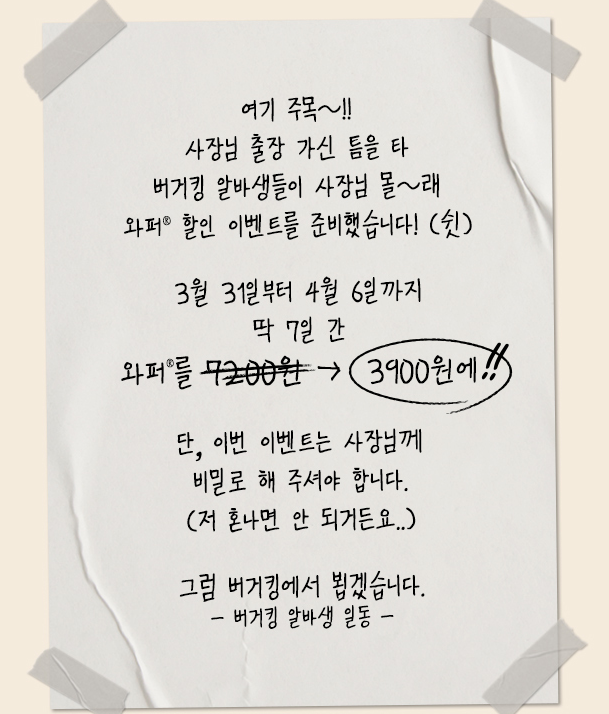 여기 주목~!!
사장님 출장 가신 틈을 타
버거킹 알바생들이 사장님 몰~래
와퍼® 할인 이벤트를 준비했습니다! (쉿)
3월 31일부터 4월 6일까지
딱 7일 간
와퍼®를 7200원 → 3900원에!!
단, 이번 이벤트는 사장님께
비밀로 해 주셔야 합니다.
(저 혼나면 안 되거든요..)
그럼 버거킹에서 뵙겠습니다.
- 버거킹 알바생 일동 -